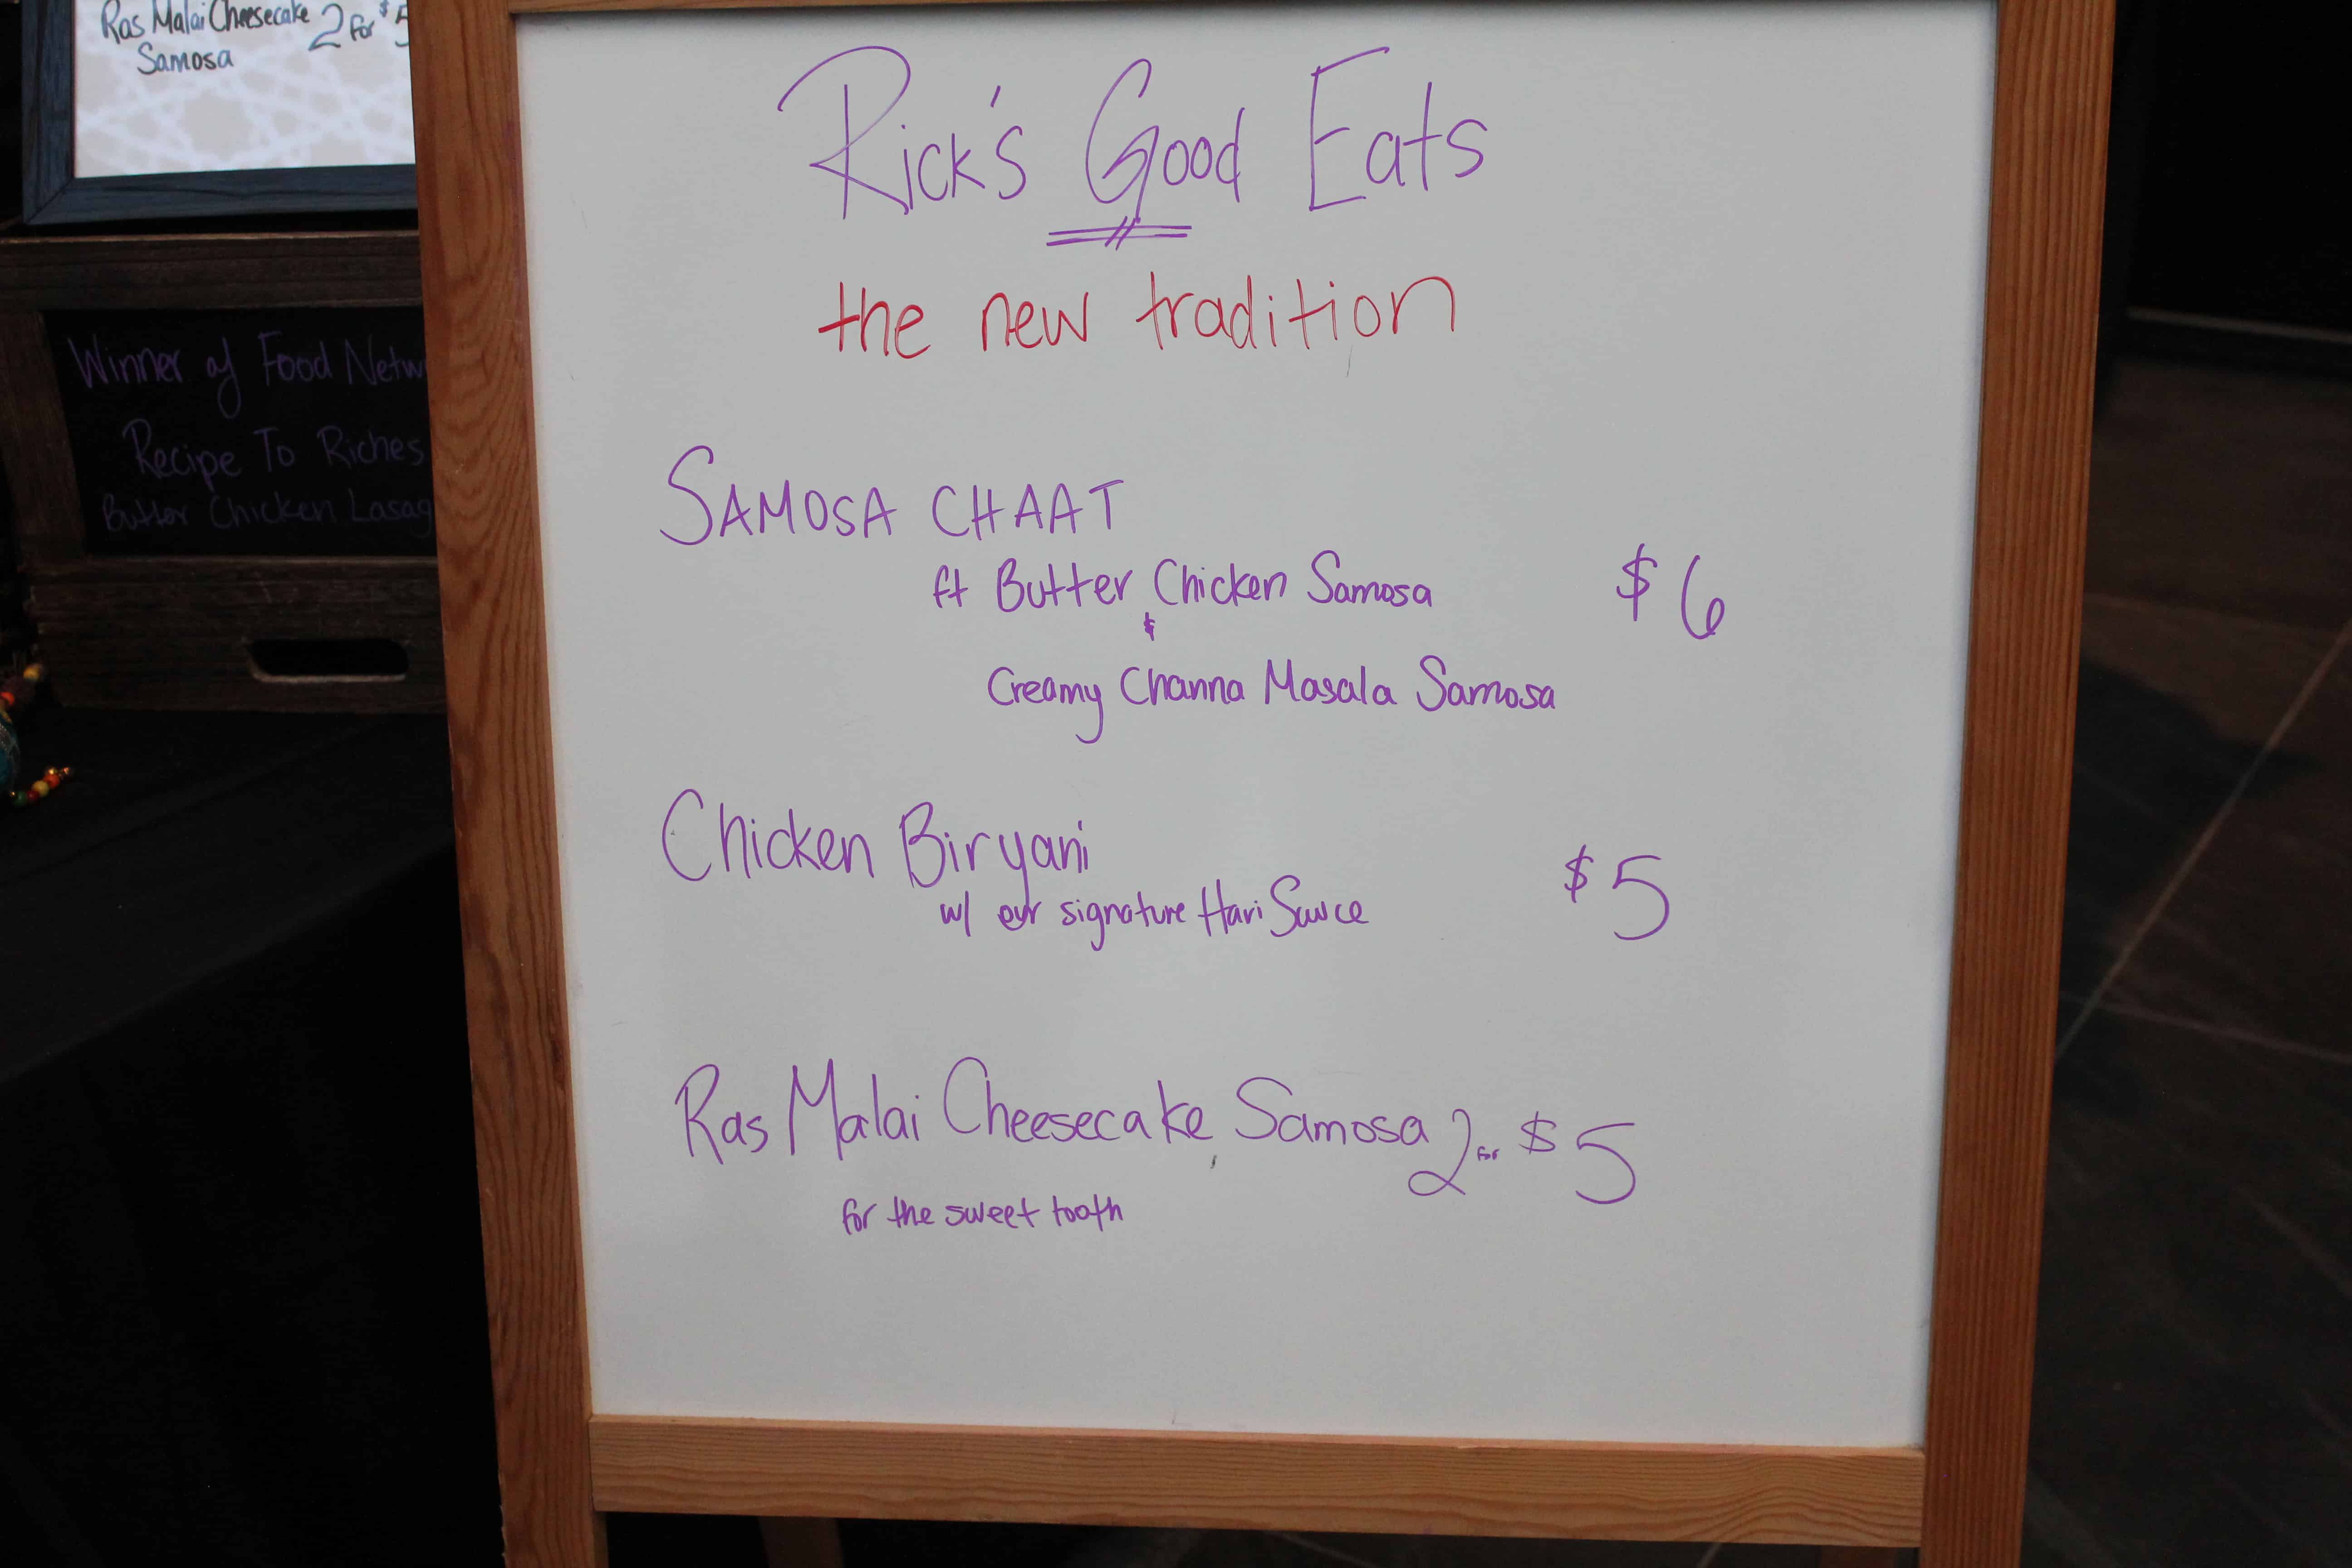 Ras Malai Cheesecake 2 for $5
Samosa
Winner of Food Netw
Recipe To Riches
Butter Chicken Lasag
Rick's Good Eats
the new tradition
SAMOSA CHAAT
ft Butter Chicken Samosa $6
&
Creamy Channa Masala Samosa
Chicken Biryani
w/ our signature Hari Sauce $5
Ras Malai Cheesecake Samosa 2 for $5
for the sweet tooth